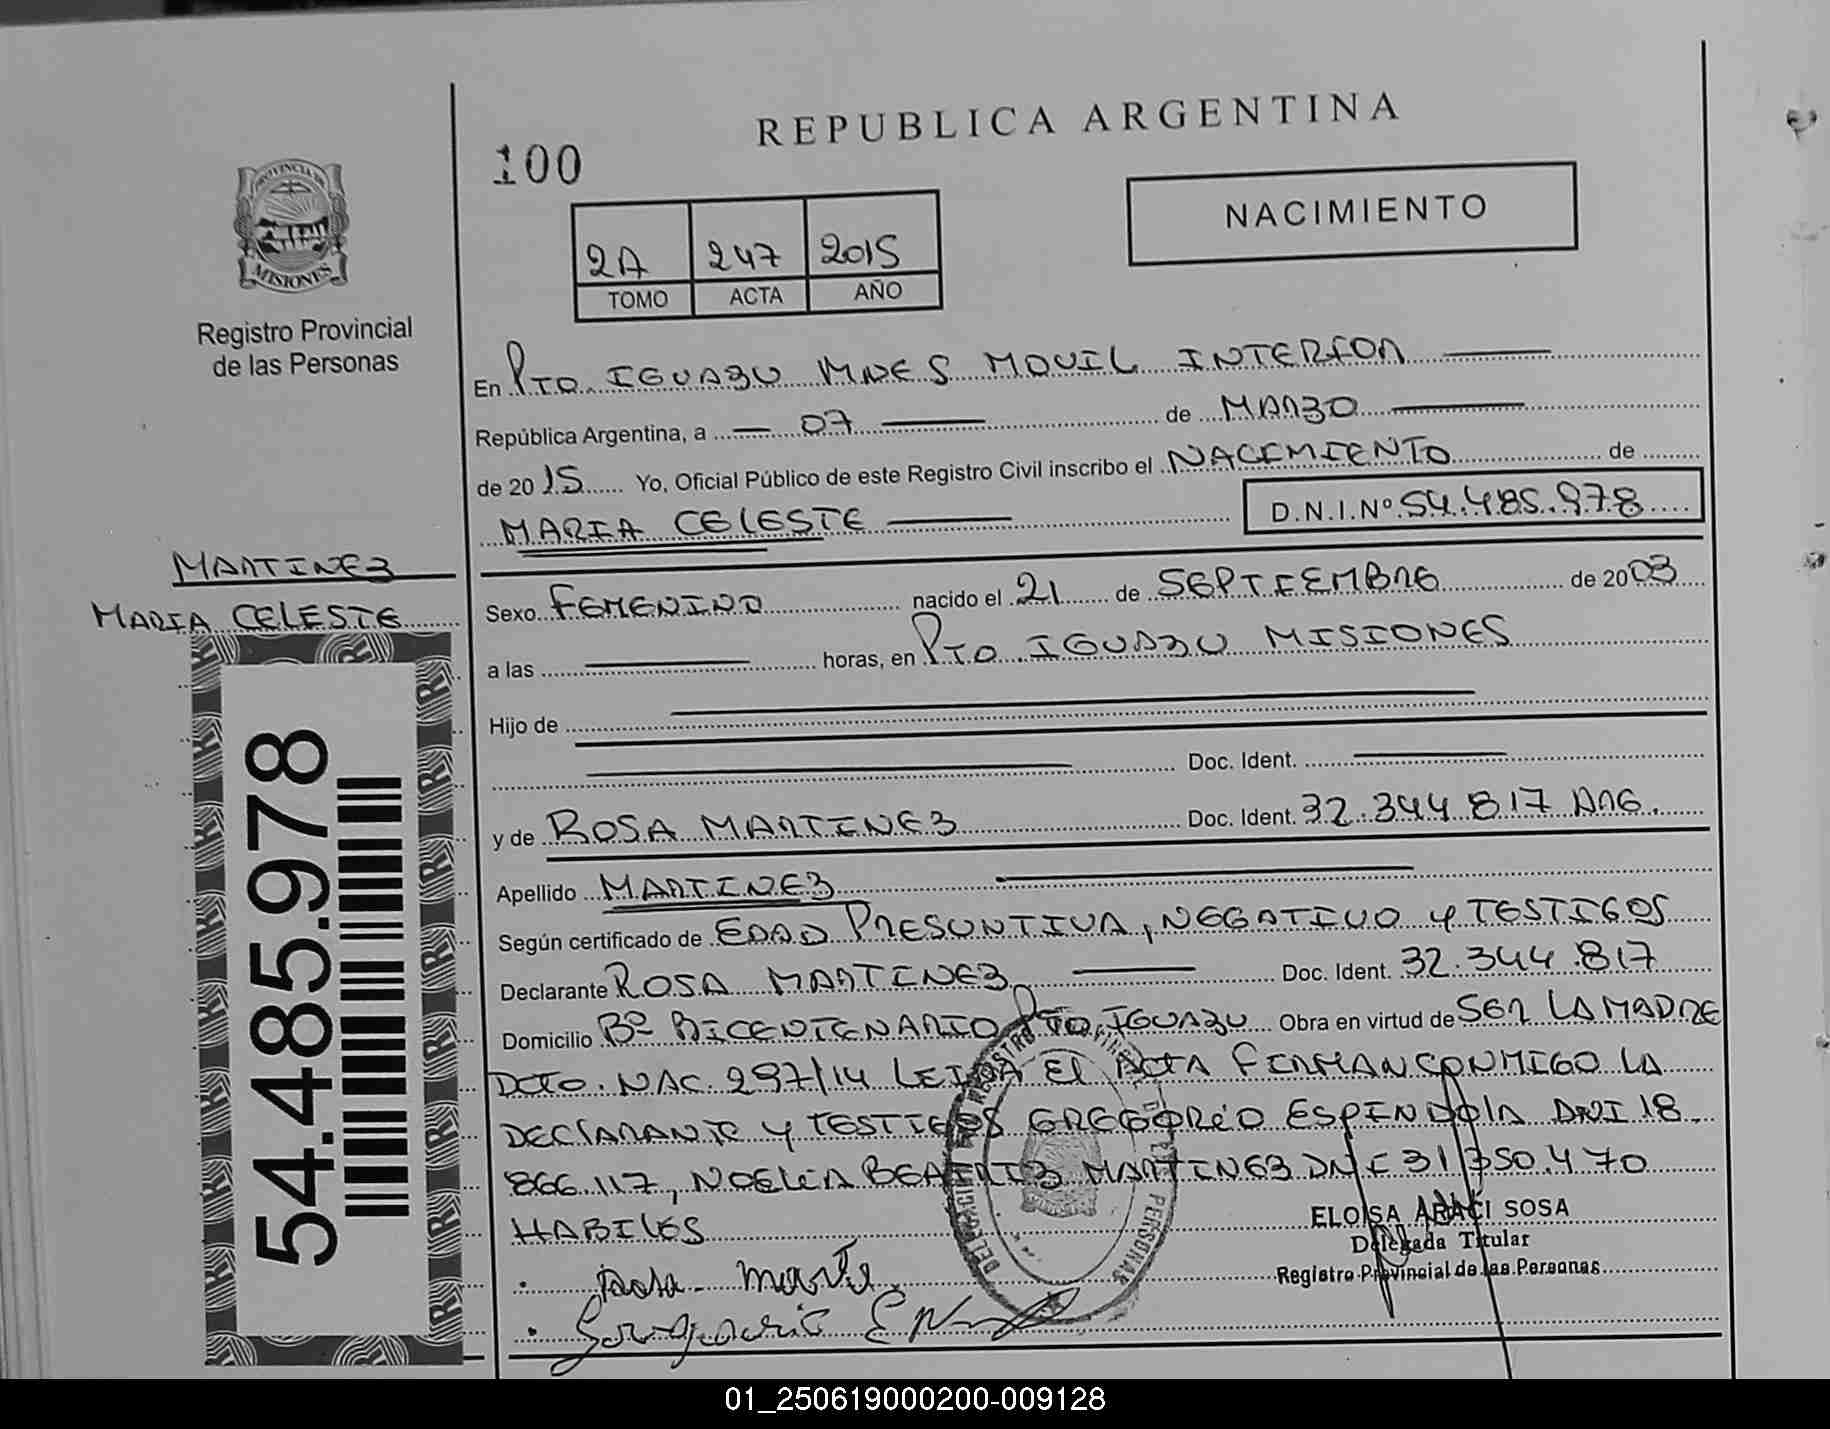 REPUBLICA ARGENTINA
100
NACIMIENTO
2A 247 2015
TOMO ACTA AÑO
PROVINCIA DE
MISIONES
Registro Provincial
de las Personas
En PTO. IGUAZU MNES MOVIL INTERIOR
República Argentina, a 07 de MARZO
de 2015 Yo, Oficial Público de este Registro Civil inscribo el NACIMIENTO de
MARIA CELESTE D.N.I.Nº 54.485.978
MARTINEZ
MARIA CELESTE
54.485.978
Sexo FEMENINO nacido el 21 de SEPTIEMBRE de 2003
a las horas, en PTO IGUAZU MISIONES
Hijo de
Doc. Ident.
y de ROSA MARTINEZ Doc. Ident. 32.344.817 ARG.
Apellido MARTINEZ
Según certificado de EDAD PRESUNTIVA, NEGATIVO y TESTIGOS
Declarante ROSA MARTINEZ Doc. Ident. 32.344.817
Domicilio Bº BICENTENARIO PTO. IGUAZU Obra en virtud de SER LA MADRE
DCTO. NAC. 297/14 LEIDA EL ACTA FIRMAN CONMIGO LA
DECLARANTE y TESTIGOS GREGORIO ESPINDOLA DNI 18.
866.117, NOELIA BEATRIZ MARTINEZ DNI 31.350.470
HABILES
ELOISA ARACI SOSA
Delegada Titular
Registro Provincial de las Personas
01_250619000200-009128